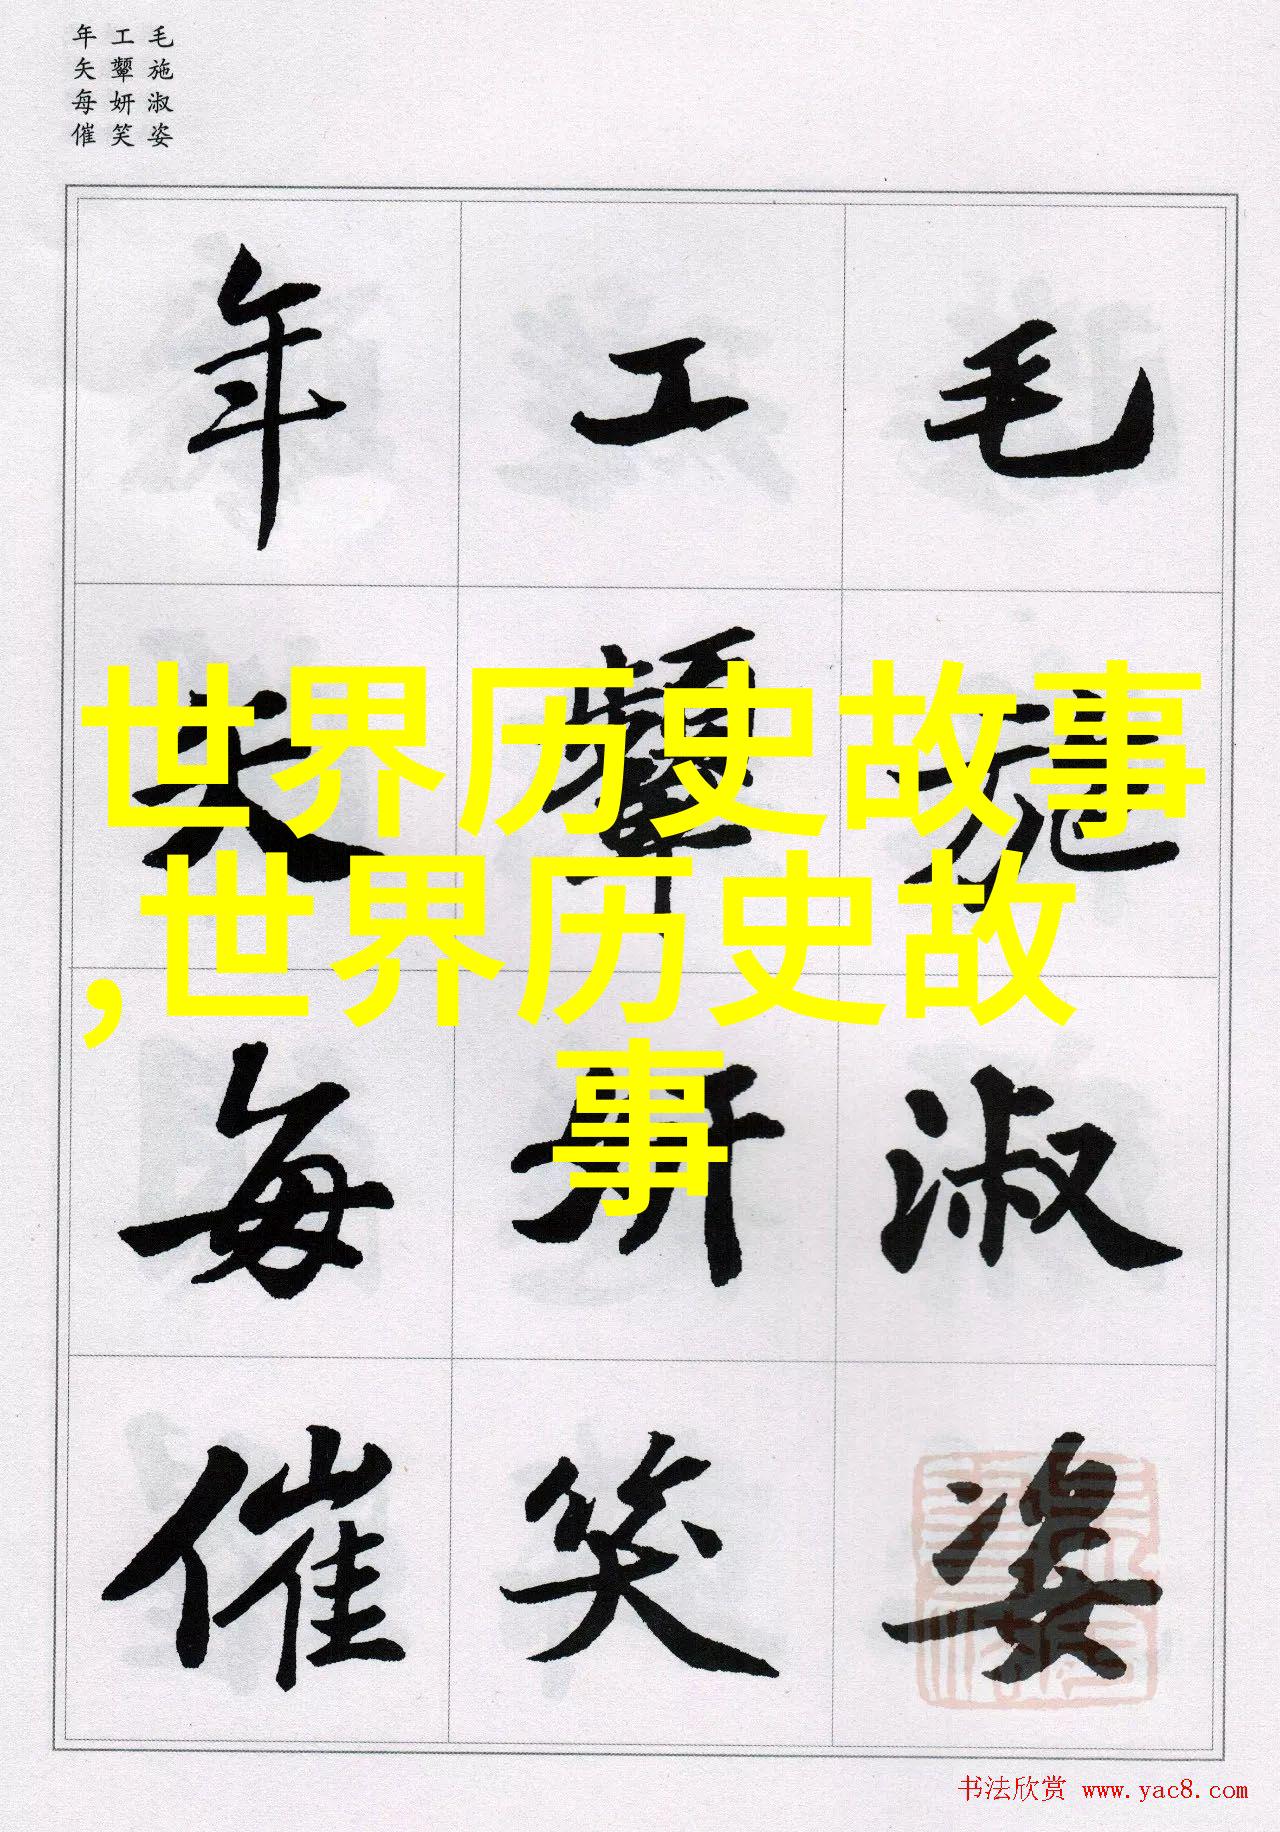 毛施淑姿
工颦妍笑
年矢每催
世界历史故事
,世界历史故
事
毛施淑姿
工颦妍笑
年矢每催
书法欣赏 www.yac8.com